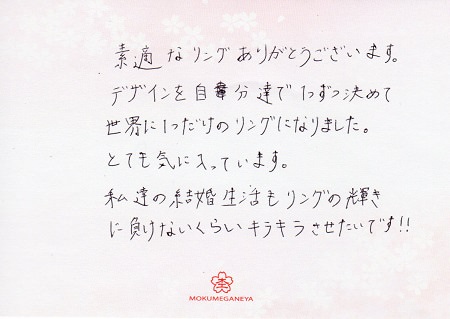 素適なリングありがとうございます。
デザインを自分達で1つずつ決めて
世界に1つだけのリングになりました。
とても気に入っています。
私達の結婚生活もリングの輝き
に負けないくらいキラキラさせたいです!!
MOKUMEGANEYA